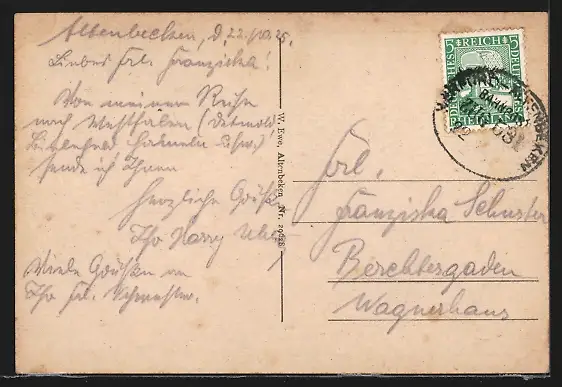 Altenbecken, d. 22. 10. 25.
Liebes Frl. Franziska!
Von meiner Reise
nach Westfalen (Detmold
Bielefeld Hameln usw.)
sende ich Ihnen
herzliche Grüße
Ihr Harry
Viele Grüße an
Ihr Frl. Schwester.
W. Ewe, Altenbeken. Nr.
5 REICH 5
DEUTSCHES REICH
BAHNPOST
ALTENBEKEN
Frl.
Franziska Schuster
Berchtergaden
Wagnerhaus